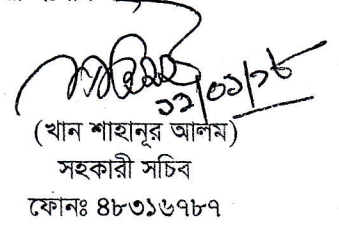 ১২/০১/১৮
(খান শাহানূর আলম)
সহকারী সচিব
ফোনঃ ৪৮৩১৬৭৮৭